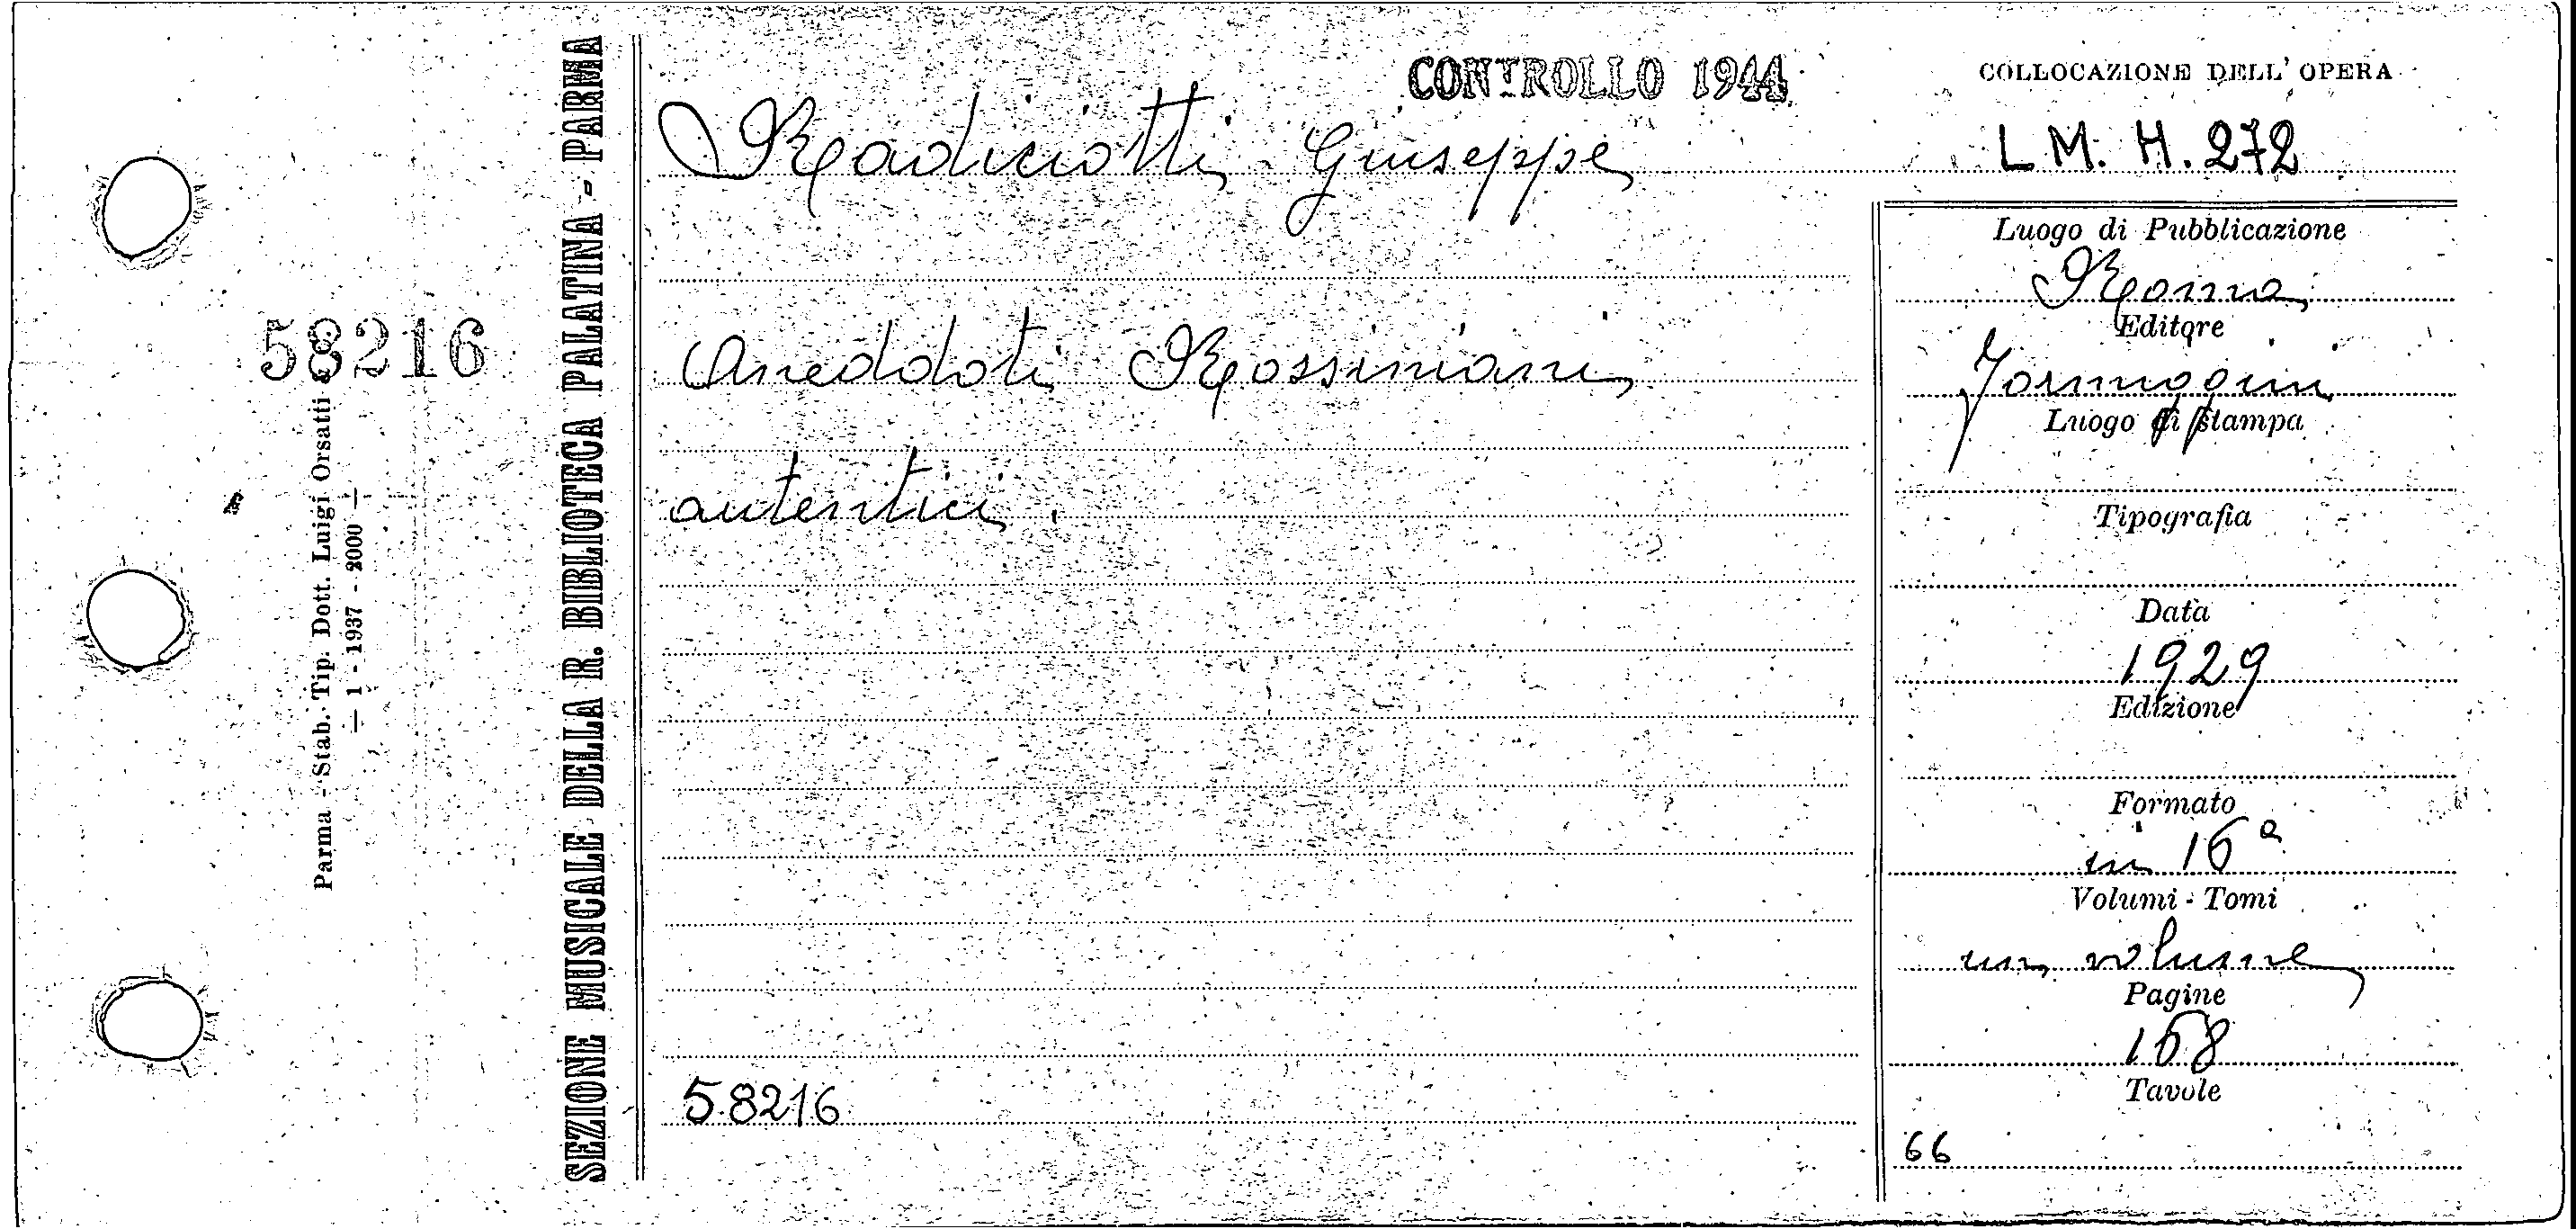 CONTROLLO 1944
COLLOCAZIONE DELL' OPERA
Radiciotti Giuseppe
L M. H. 272
Aneddoti Rossiniani
autentici.
58216
Luogo di Pubblicazione
Roma
Editore
Formaggini
Luogo di stampa
Tipografia
Data
1929
Edizione
Formato
in 16º
Volumi - Tomi
un volume
Pagine
168
Tavole
66
SEZIONE MUSICALE DELLA R. BIBLIOTECA PALATINA - PARMA
58216
Parma - Stab. Tip. Dott. Luigi Orsatti
— 1 - 1937 - 2000 —